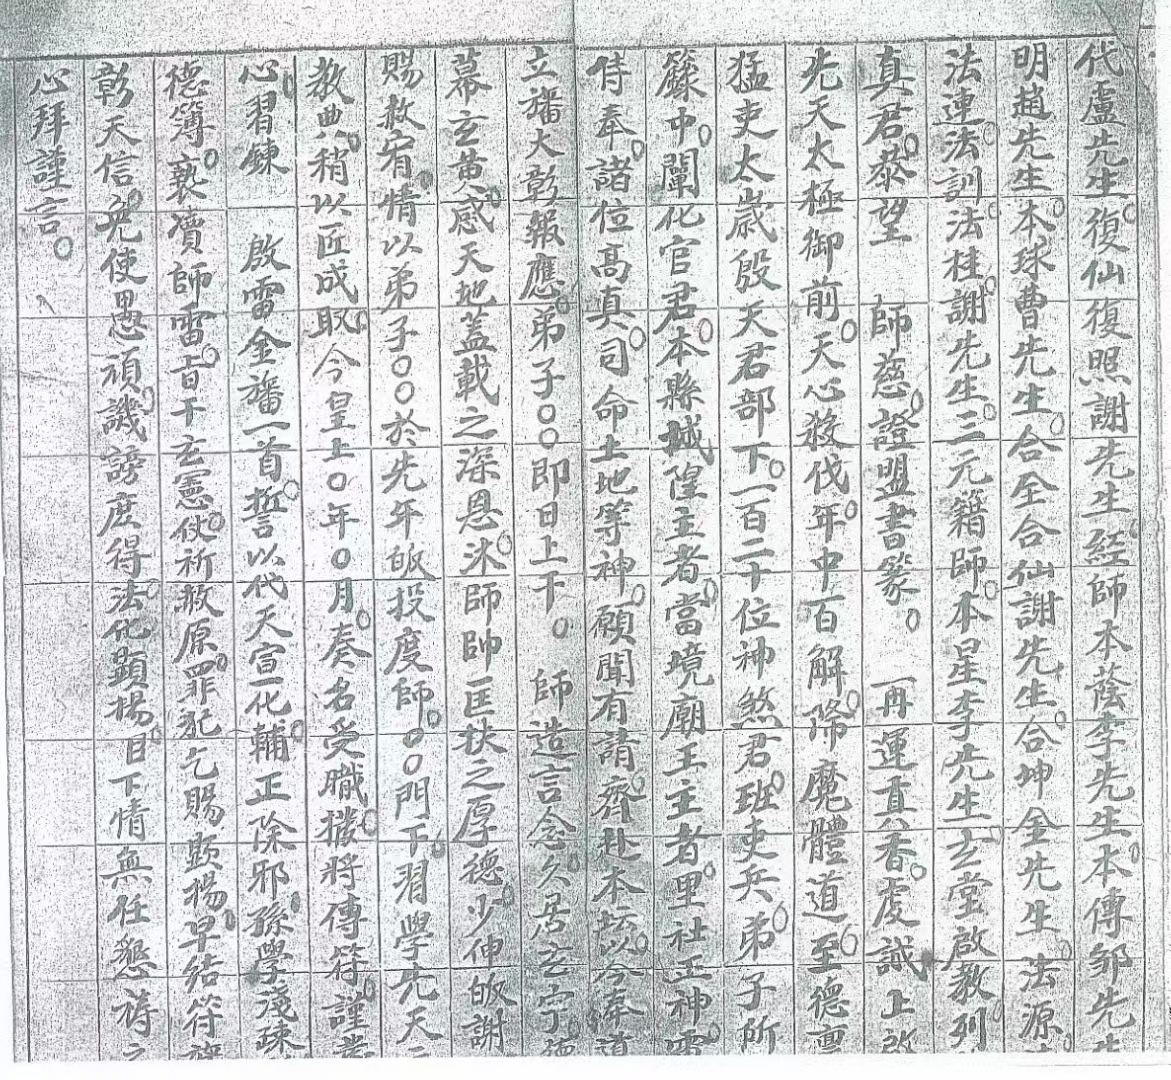 代盧先生。復仙復照謝先生。經師本蔭李先生。本傳鄒先生
明趙先生。本球曹先生。合全合仙謝先生。合坤金先生。法源
法連。法訓。法桂。謝先生。三元籍師。本星李先生。玄堂啟教列
真君。恭望 師慈。證盟書篆。 再運真香。虔誠上啟
先天太極御前。天心殺伐年。中百解。降魔體道。至德
猛吏太歲殷天君部下。一百二十位神煞。君班吏兵。弟子所
籙中。闡化官君。本縣城隍主者。當境廟王主者。里社正神。雷
侍奉。諸位高真。司命土地等神。願聞有請。齊赴本坛。以今奉道
立旛大彰報應。弟子〇〇即日上干。 師造言念。久居玄宁。德
幕玄黃。感天地蓋載之深恩。沐師帥匡扶之厚德。少伸皈謝
賜赦宥。情以弟子〇〇於先年皈投度師。〇〇門下。習學先天
教典。稍以匠成。耿今皇上〇年〇月。奏名受職。撥將傳符。謹
心。習鍊 啟雷金旛一首。誓以代天宣化。輔正除邪。孫學淺疎
德簿。褻凟師雷。旨干玄憲。伏祈赦原。罪犯乞賜顯揚。早結符
彰天信。免使愚頑。譏謗庶得。法化顯揚。目下情無任懇禱之
心拜謹言。